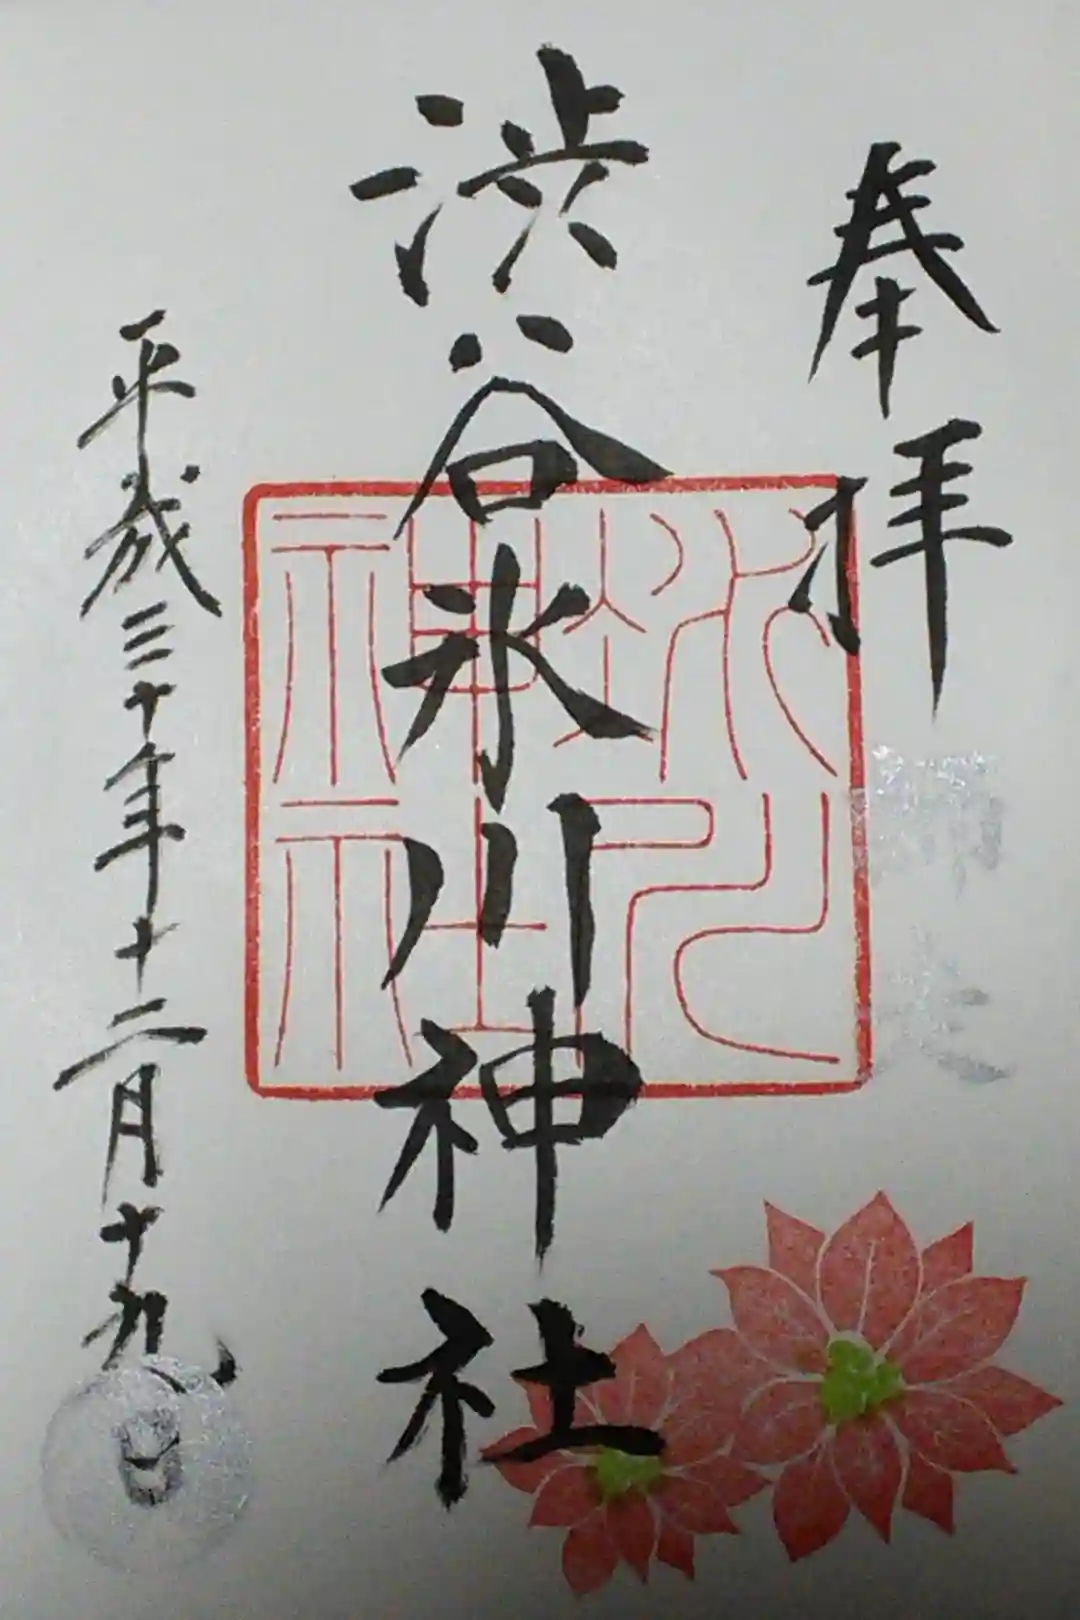 奉拝
渋谷氷川神社
氷川
神社
平成三十年十二月十九日